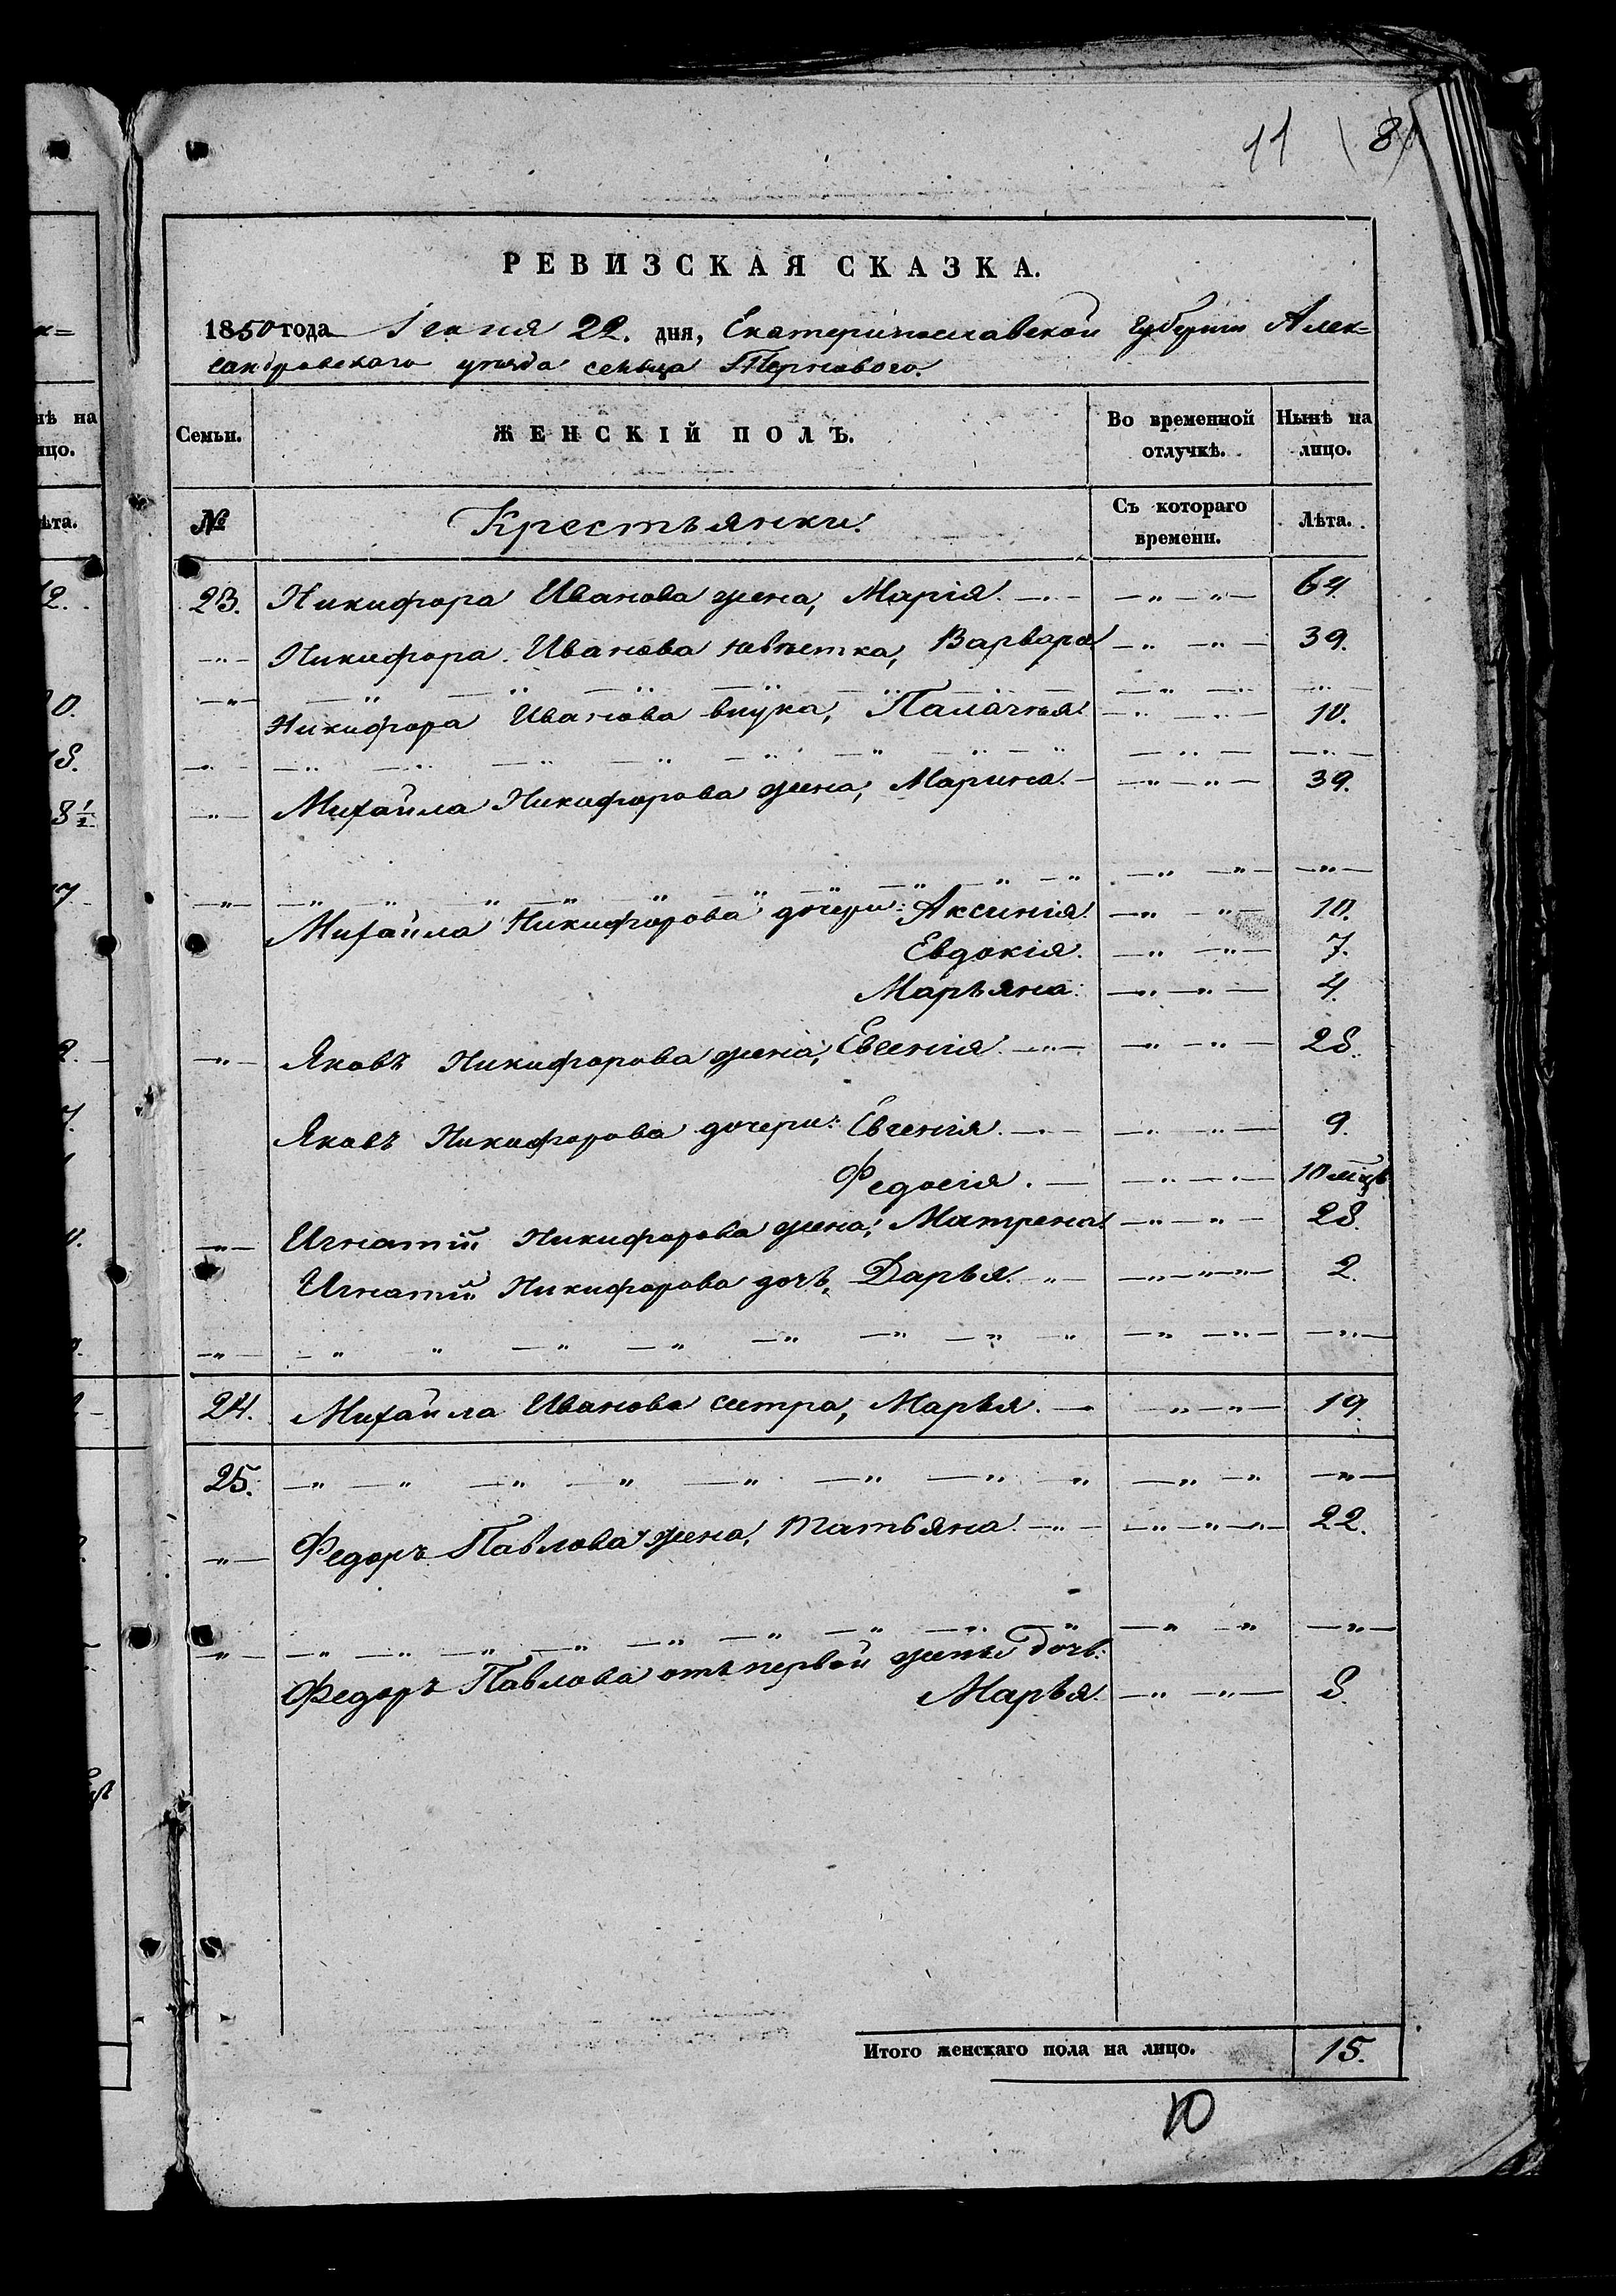 11 (8)
РЕВИЗСКАЯ СКАЗКА.
1850 года Іюня 22. дня, Екатеринославской губерніи Алек=
сандровского уѣзда сельца Терноваго.
Семьи. ЖЕНСКІЙ ПОЛЪ. Во временной отлучкѣ. Нынѣ на лицо.
№ Крестьянки. Съ котораго времени. Лѣта.
23. Никифора Иванова жена, Марія. 64
Никифора Иванова невѣстка, Варвара 39.
Никифора Иванова внука, Палагѣя. 10.
Михайла Никифорова жена, Марина. 39.
Михайла Никифорова дочери: Аксинія. 10.
Евдокія. 7.
Марьяна. 4.
Яковъ Никифорова жена, Евгенія. 28.
Яковъ Никифорова дочери: Евгенія. 9.
Федосія. 10 мцв
Игнатій Никифорова жена, Матрена. 28.
Игнатій Никифорова дочь, Дарья. 2.
24. Михайла Иванова сестра, Марья. 19
25.
Федоръ Павлова жена, Татьяна. 22.
Федоръ Павлова отъ первой жены дочь:
Марья. 8.
Итого женскаго пола на лицо. 15.
10